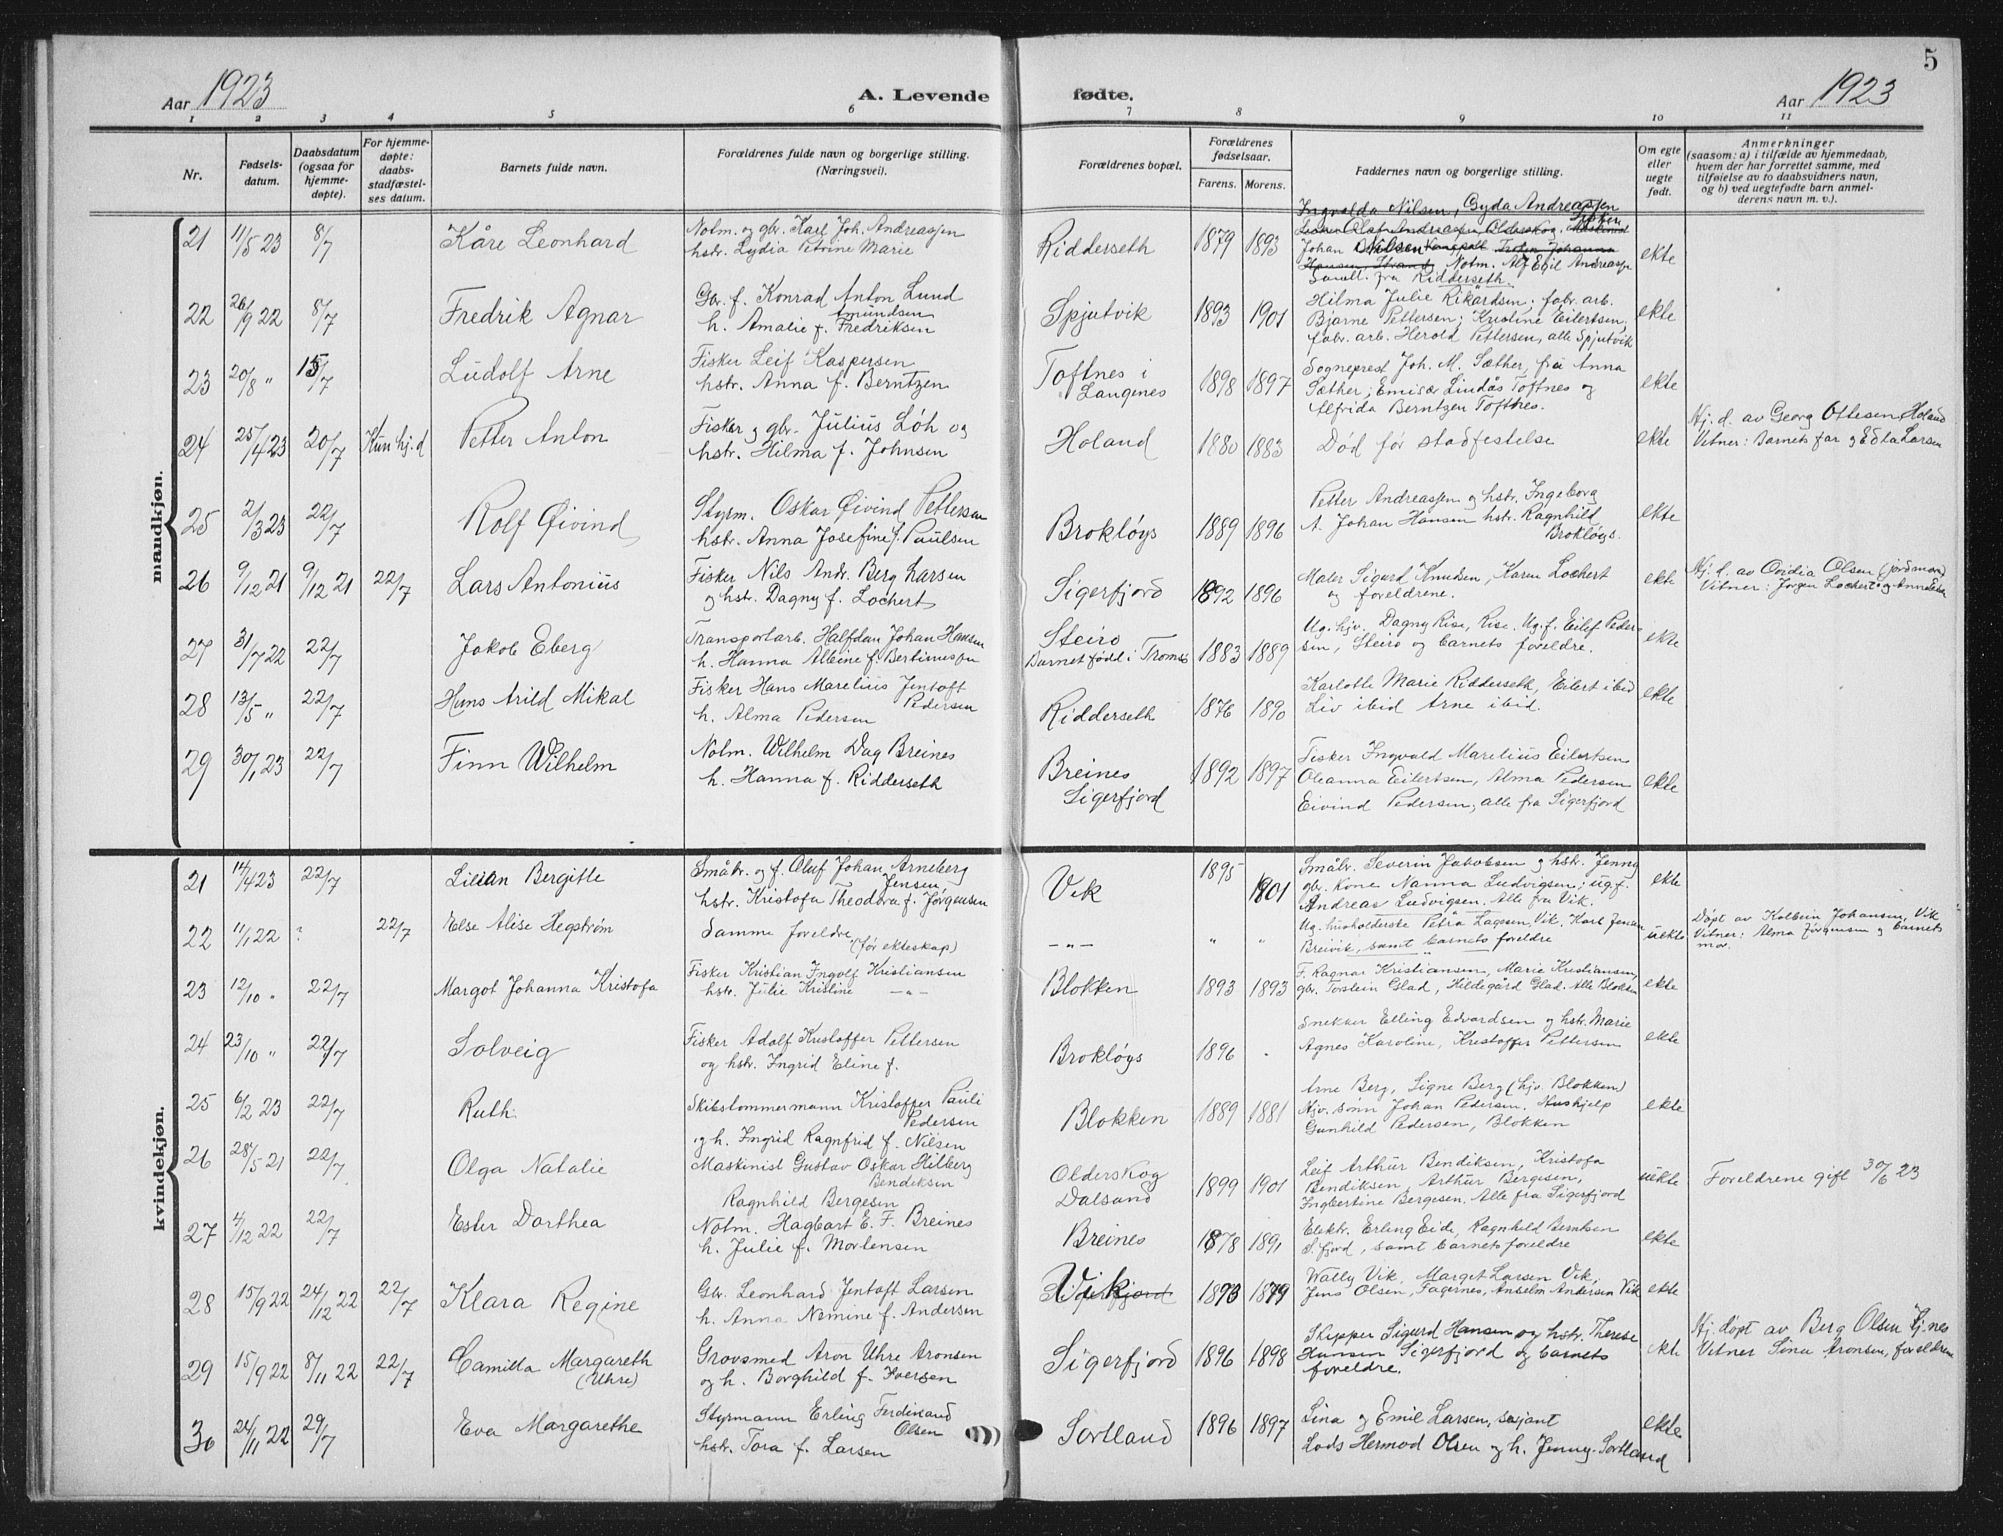 5
Aar 1923
A. Levende fødte.
Aar 1923
1 2 3 4 5 6 7 8 9 10 11
Nr.
Fødsels-
datum.
Daabsdatum
(ogsaa for
hjemme-
døpte).
For hjemme-
døpte:
daabs-
stadfæstel-
ses datum.
Barnets fulde navn.
Forældrenes fulde navn og borgerlige stilling.
(Næringsvei).
Forældrenes bopæl.
Forældrenes
fødselsaar.
Farens. Morens.
Faddernes navn og borgerlige stilling.
Om egte
eller
uegte
født.
Anmerkninger
(saasom: a) i tilfælde av hjemmedaab,
hvem der har forrettet samme, med
tilføielse av to daabsvidners navn,
og b) ved uegtefødte barn anmel-
derens navn m. v.).
mandkjøn.
21 11/5 23 8/7 Kåre Leonhard
Notm. og gbr. Karl Joh. Andreassen
hstr. Lydia Petrine Marie
Ridderseth 1879 1893
Ingvalda Nilsen, Gyda Andreassen
Johan Nilsen
Notm. Alf Egil Andreassen
Samtl. fra Ridderseth.
ekte
22 26/9 22 8/7 Fredrik Agnar
Gbr. f. Konrad Anton Lund
Amundsen
h. Amalie f. Fredriksen
Spjutvik 1893 1901
Hilma Julie Rikardsen; fabr. arb.
Bjarne Pettersen; Kristine Eilertsen,
fabr. arb. Herold Pettersen, alle Spjutvik
ekte
23 20/8 " 15/7 Ludolf Arne
Fisker Leif Kaspersen
hstr. Anna f. Berntzen
Toftnes i
Langenes
1898 1897
Sogneprest Joh. M. Sæther, fru Anna
Sæther; Emisær Lindås Toftnes og
Alfrida Berntzen Toftnes.
ekte
24 25/4 23 20/7 Kun hj. d Petter Anton
Fisker og gbr. Julius Löh og
hstr. Hilma f. Johnsen
Holand 1880 1883
Død før stadfestelse
ekte
Hj. d. av Georg Ottesen, Holand
Vitner: Barnets far og Edta Larsen
25 2/3 23 22/7 Rolf Øivind
Styrm. Oskar Øivind Pettersen
hstr. Anna Josefine f. Paulsen
Brokløys 1889 1896
Petter Andreassen og hstr. Ingeborg
A. Johan Hansen hstr. Ragnhild
Brokløys.
ekte
26 9/12 21 9/12 21 22/7 Lars Antonius
Fisker Nils Andr. Berg Larsen
og hstr. Dagny f. Lochert
Sigerfjord 1892 1896
Maler Sigurd Knudsen, Karen Lochert
og foreldrene.
ekte
Hj. d. av Ovidia Olsen (jordmor)
Vitner: Jørgen Lochert og Anna
27 31/7 22 22/7 Jakob Eberg
Transportarb. Halfdan Johan Hansen
h. Hanna Albine f. Bertinussen
Steiro
Barnet född i Tromsö
1883 1889
Ug. hjv. Dagny Rise, Rise. Ug. f. Eilef Peder-
sen, Steiro og barnets foreldre.
ekte
28 13/5 " 22/7 Hans Arild Mikal
Fisker Hans Marelius Jentoft
Pedersen
h. Alma Pedersen
Ridderseth 1876 1890
Karlotte Marie Ridderseth, Eilert ibid
Liv ibid Arne ibid.
ekte
29 30/1 23 22/7 Finn Wilhelm
Notm. Wilhelm Dag Breines
h. Hanna f. Ridderseth
Breines
Sigerfjord
1892 1897
Fisker Ingvald Marelius Eilertsen
Oleanna Eilertsen, Alma Pedersen
Eivind Pedersen, alle fra Sigerfjord
ekte
kvindekjøn.
21 14/4 23 22/7 Lilian Bergitte
Småbr. og f. Oluf Johan Arneberg
Jensen
hstr. Kristofa Theodora f. Jørgensen
Vik 1895 1901
Småbr. Severin Jakobsen og hstr. Jenny
gbr. kone Nanna Ludvigsen; ug. f.
Andreas Ludvigsen. Alle fra Vik.
ekte
22 11/1 22 ? 22/7 Else Alise Hegström
Samme foreldre
(før ekteskap)
— " — " "
Ug. husholderske Petra Lagesen, Vik, Karl Jensen
Breivik, samt barnets foreldre
uekte
Döpt av Kolbein Johansen, Vik
Vitner: Alma Jörgensen og barnets
mor.
23 12/10 " 22/7 Margot Johanna Kristofa
Fisker Kristian Ingolf Kristiansen
hstr. Julie Kristine — " —
Blokken 1893 1893
F. Ragnar Kristiansen, Marie Kristiansen,
gbr. Torstein Glad, Hildegård Glad. Alle Blokken
ekte
24 23/10 " 22/7 Solveig
Fisker Adolf Kristoffer Pettersen
og hstr. Ingrid Eline f.
Brokløys 1896 .
Snekker Elling Edvardsen og hstr. Marie
Agnes Karoline, Kristoffer Pettersen
ekte
25 6/2 23 22/7 Ruth
Skibstømmermann Kristoffer Pauli
Pedersen
og h. Ingrid Ragnfrid f. Nilsen
Blokken 1889 1881
Arne Berg, Signe Berg (hjv. Blokken)
Hjv. sønn Johan Pedersen. Huskjelp
Gunhild Pedersen, Blokken
ekte
26 28/5 21 22/7 Olga Natalie
Maskinist Gustav Oskar Hilberg
Bendiksen
Ragnhild Bergesen
Olderskog
Dalsand
1899 1901
Leif Arthur Bendiksen, Kristofa
Bendiksen, Arthur Bergesen,
Ingbertine Bergesen. Alle fra Sigerfjord
uekte
Foreldrene gift 30/6 23
27 4/12 22 22/7 Ester Dorthea
Notm. Hagbart E. F. Breines
h. Julie f. Mortensen
Breines 1878 1891
Elektr. Erling Eide, Ragnhild Berntsen
S.fjord, samt barnets foreldre
ekte
28 15/9 22 24/12 22 22/7 Klara Regine
Gbr. Leonhard Jentoft Larsen
h. Anna Nemine f. Andersen
Vik 1873 1879
Wally Vik, Margot Larsen Vik,
Jens Olsen, Fagernes, Anselm Andersen Vik
ekte
29 15/9 22 8/11 22 22/7 Camilla Margareth
(Uhre)
Grovsmed Aron Uhre Aronsen
og h. Borghild f. Iversen
Sigerfjord 1896 1898
Skipper Sigurd Hansen og hstr. Therese
Hansen Sigerfjord og barnets
foreldre.
ekte
Hj. döpt av Berg Olsen Kj.nes
Vitner Lina Aronsen, foreldrene
30 24/11 22 29/7 Eva Margarethe
Styrmann Erling Ferdinand
Olsen
hstr. Tora f. Larsen
Sortland 1896 1897
Lina og Emil Larsen, sersjant
Lods Hermod Olsen og h. Jenny. Sortland
ekte